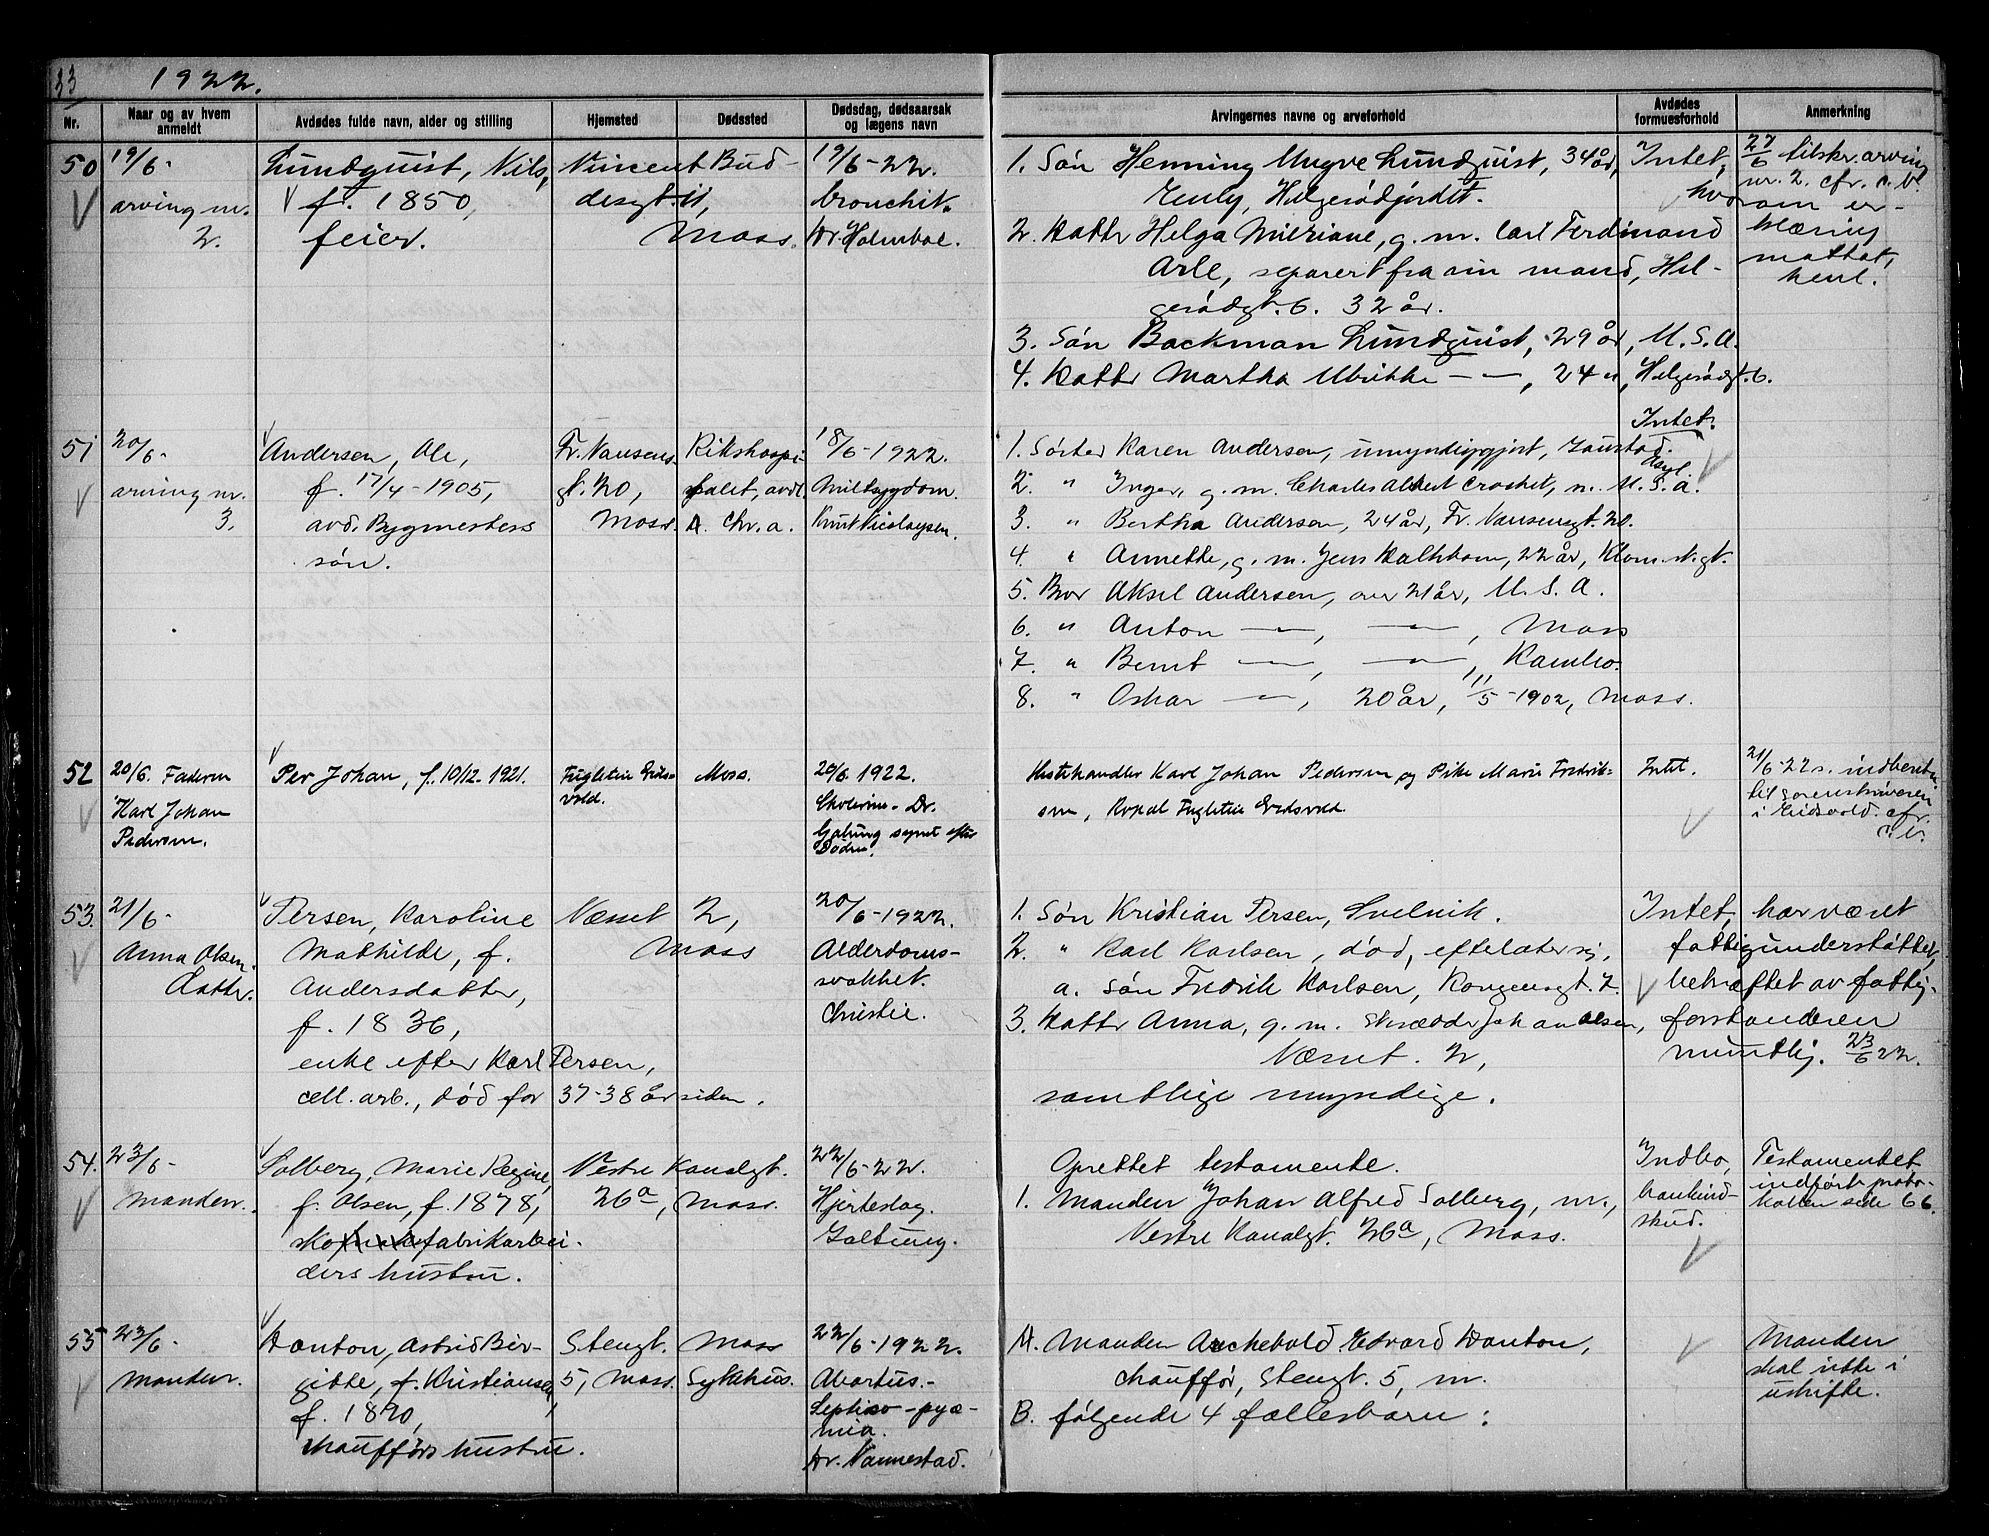 33 1922.
Nr.
Naar og av hvem
anmeldt
Avdødes fulde navn, alder og stilling
Hjemsted
Dødssted
Dødsdag, dødsaarsak
og lægens navn
Arvingernes navne og arveforhold
Avdødes
formuesforhold
Anmerkning
50
19/6-
arving nr.
2.
Lundquist, Nils,
f. 1850,
feier.
Vincent Bud-
desgt. 11,
Moss.
19/6-22.
bronchit.
Dr. Holmboe.
1. Søn Henning Yngve Lundquist, 34 år,
Helgerødjordet.
2. Datter Helga Miriane, g. m. Carl Ferdinand
Arle, separert fra sin mand, Hel-
gerødgt. 6. 32 år.
3. Søn Backman Lundquist, 29 år, U. S. A.
4. Datter Martha Ulrikke —"—, 24 ", Helgerødgt. 6.
Intet,
hvorom er-
klæring
mottat,
henl.
27/6 tilskr. arving
nr. 2. cfr. c. b.
51
20/6-
arving nr.
3.
Andersen, Ole,
f. 17/4-1905,
avd. Bygmesters
søn.
Fr. Nansens-
gt. 20,
Moss.
Rikshospi-
talet, avd.
A. Chr.a.
18/6-1922.
Miltsygdom.
Knut Nicolaysen.
1. Søster Karen Andersen, umyndiggjort, Gaustad
Asyl.
2. " Inger, g. m. Charles Albert Crocket, n. U. S. A.
3. " Bertha Andersen, 24 år, Fr. Nansensgt. 20.
4. " Annette, g. m. Jens 22 år,
5. Bror Aksel Andersen, over 21 år, U. S. A.
6. " Anton —"—, —"—, Moss
7. " Bernt —"—, —"—, Kambo.
8. " Oskar —"—, 20 år, 11/5-1902, Moss.
Intet.
52
20/6. Faderen
Karl Johan
Pedersen.
Per Johan, f. 10/12-1921.
Fugletin Eids-
vold.
Moss.
20/6 1922.
Cholerine. Dr.
Galtung synet efter
Døden.
Hestehandler Karl Johan Pedersen og Pike Marie Fredrik-
sen, Fugletin Eidsvold
Intet.
21/6-22 s. indberetn.
til sorenskriveren
i Eidsvold. cfr.
c. b.
53.
21/6-
Anna Olsen.
Datter.
Persen, Karoline
Mathilde, f.
Andersdatter,
f. 1836,
enke efter Karl Persen,
cell. arb., død for 37-38 år siden.
Værnet 2,
Moss
20/6-1922.
Alderdoms-
svakhet.
Christie.
1. Søn Kristian Persen, Svelvik.
2. " Karl Karlsen, død, efterlater sig,
a. søn Fredrik Karlsen, Kongensgt. 7.
3. Datter Anna, g. m. Skrædder Johan Olsen,
Værnet. 2,
samtlige myndige.
Intet, har været
fattigunderstøttet,
bekræftet av fattig-
forstanderen
muntlig. 23/6 22.
54.
23/6-
manden.
Solberg, Marie Regine,
f. Olsen, f. 1878,
skofabrikarbei-
ders hustru.
Vestre Kanalgt.
26a, Moss.
22/6-22.
Hjerteslag.
Galtung.
Oprettet testamente.
1. Manden Johan Alfred Solberg, m.,
Vestre Kanalgt. 26a, Moss.
Indbo,
bankind-
skud.
Testamentet
indført i proto-
kollen side 66.
55
23/6-
manden.
Danton, Astrid Bir-
gitte, f. Kristiansen,
f. 1890,
chaufførs hustru.
Stengt.
5, Moss.
Moss
Sykehus.
22/6-1922.
Abortus.-
Septico-pyæ-
mia.
Dr. Nannestad.
A. Manden Archebold Edvard Danton,
chauffør, Stengt. 5, m.
B. følgende 4 fællesbarn:
Manden
skal sitte i
uskifte.